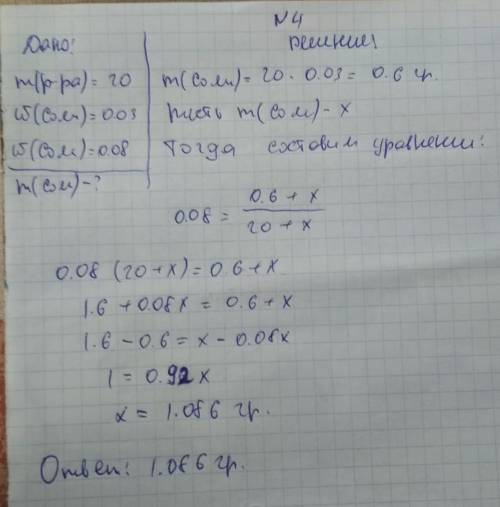 N4
Дано:
Решение
m(р-ра) = 20
m(соли) = 20 · 0.03 = 0.6 гр.
ω(соли) = 0.03
пусть m(соли) - x
ω(соли) = 0.08
Тогда составим уравнение:
m(соли) - ?
0.08 = (0.6 + x) / (20 + x)
0.08 (20 + x) = 0.6 + x
1.6 + 0.08x = 0.6 + x
1.6 - 0.6 = x - 0.08x
1 = 0.92x
x = 1.086 гр.
Ответ: 1.086 гр.